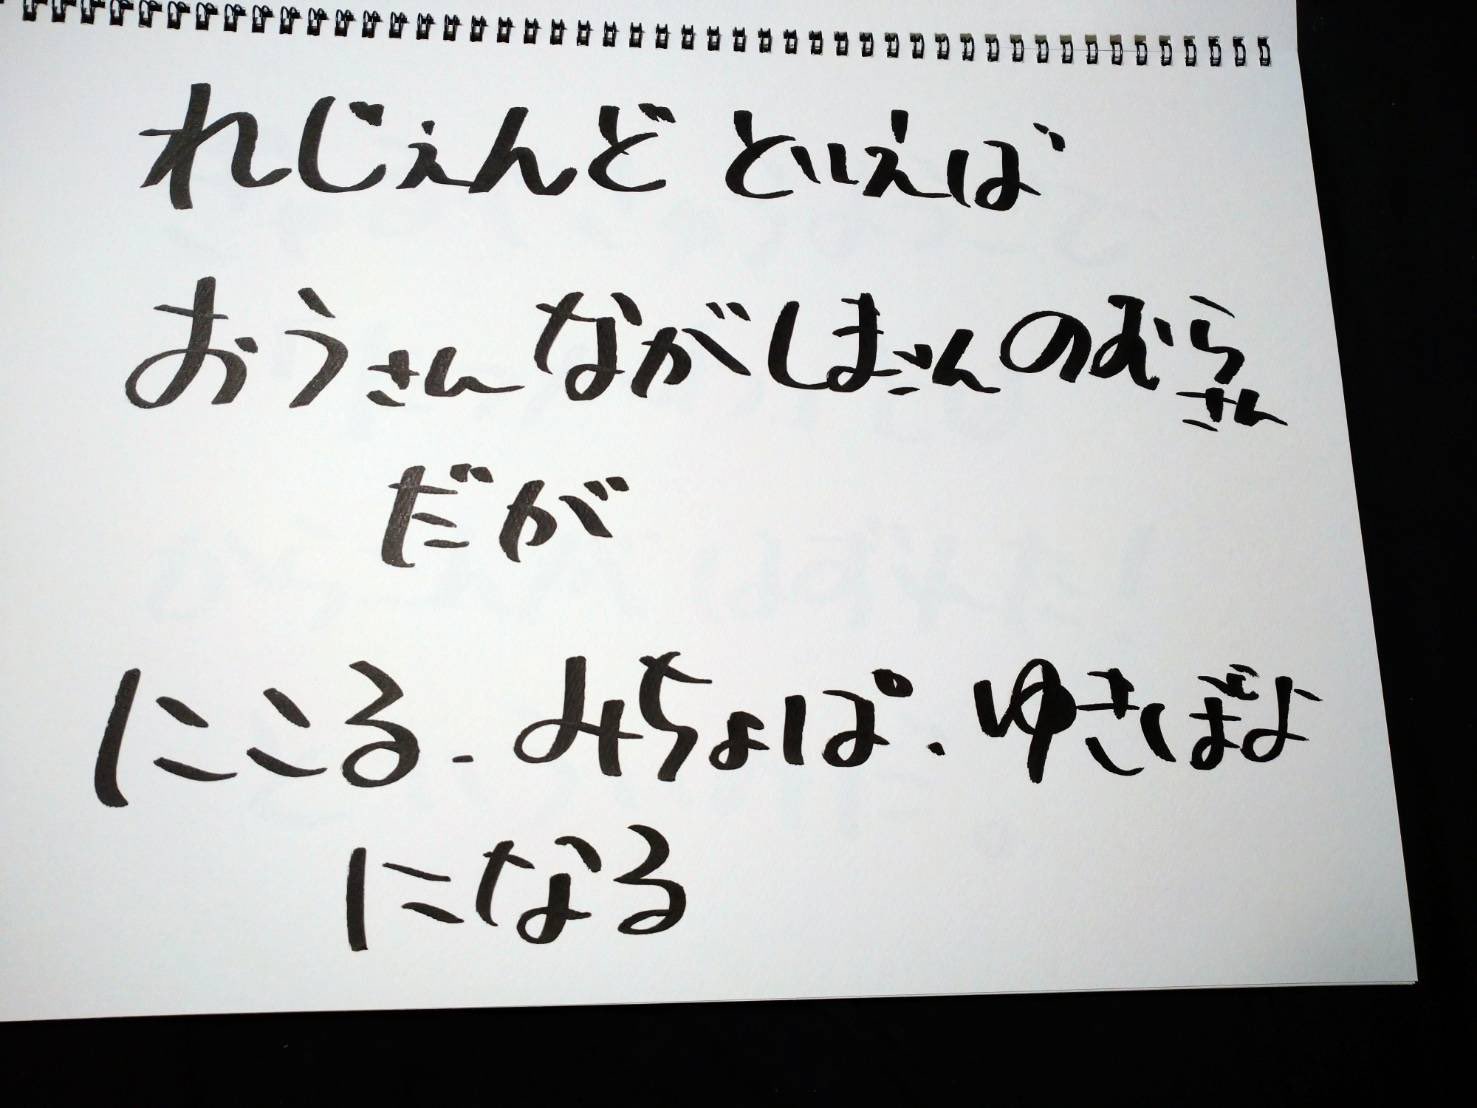 れじぇんど といえば
おうさん ながしまさん のむらさん
だが
にこる.みちょぱ.ゆきぽよ
になる